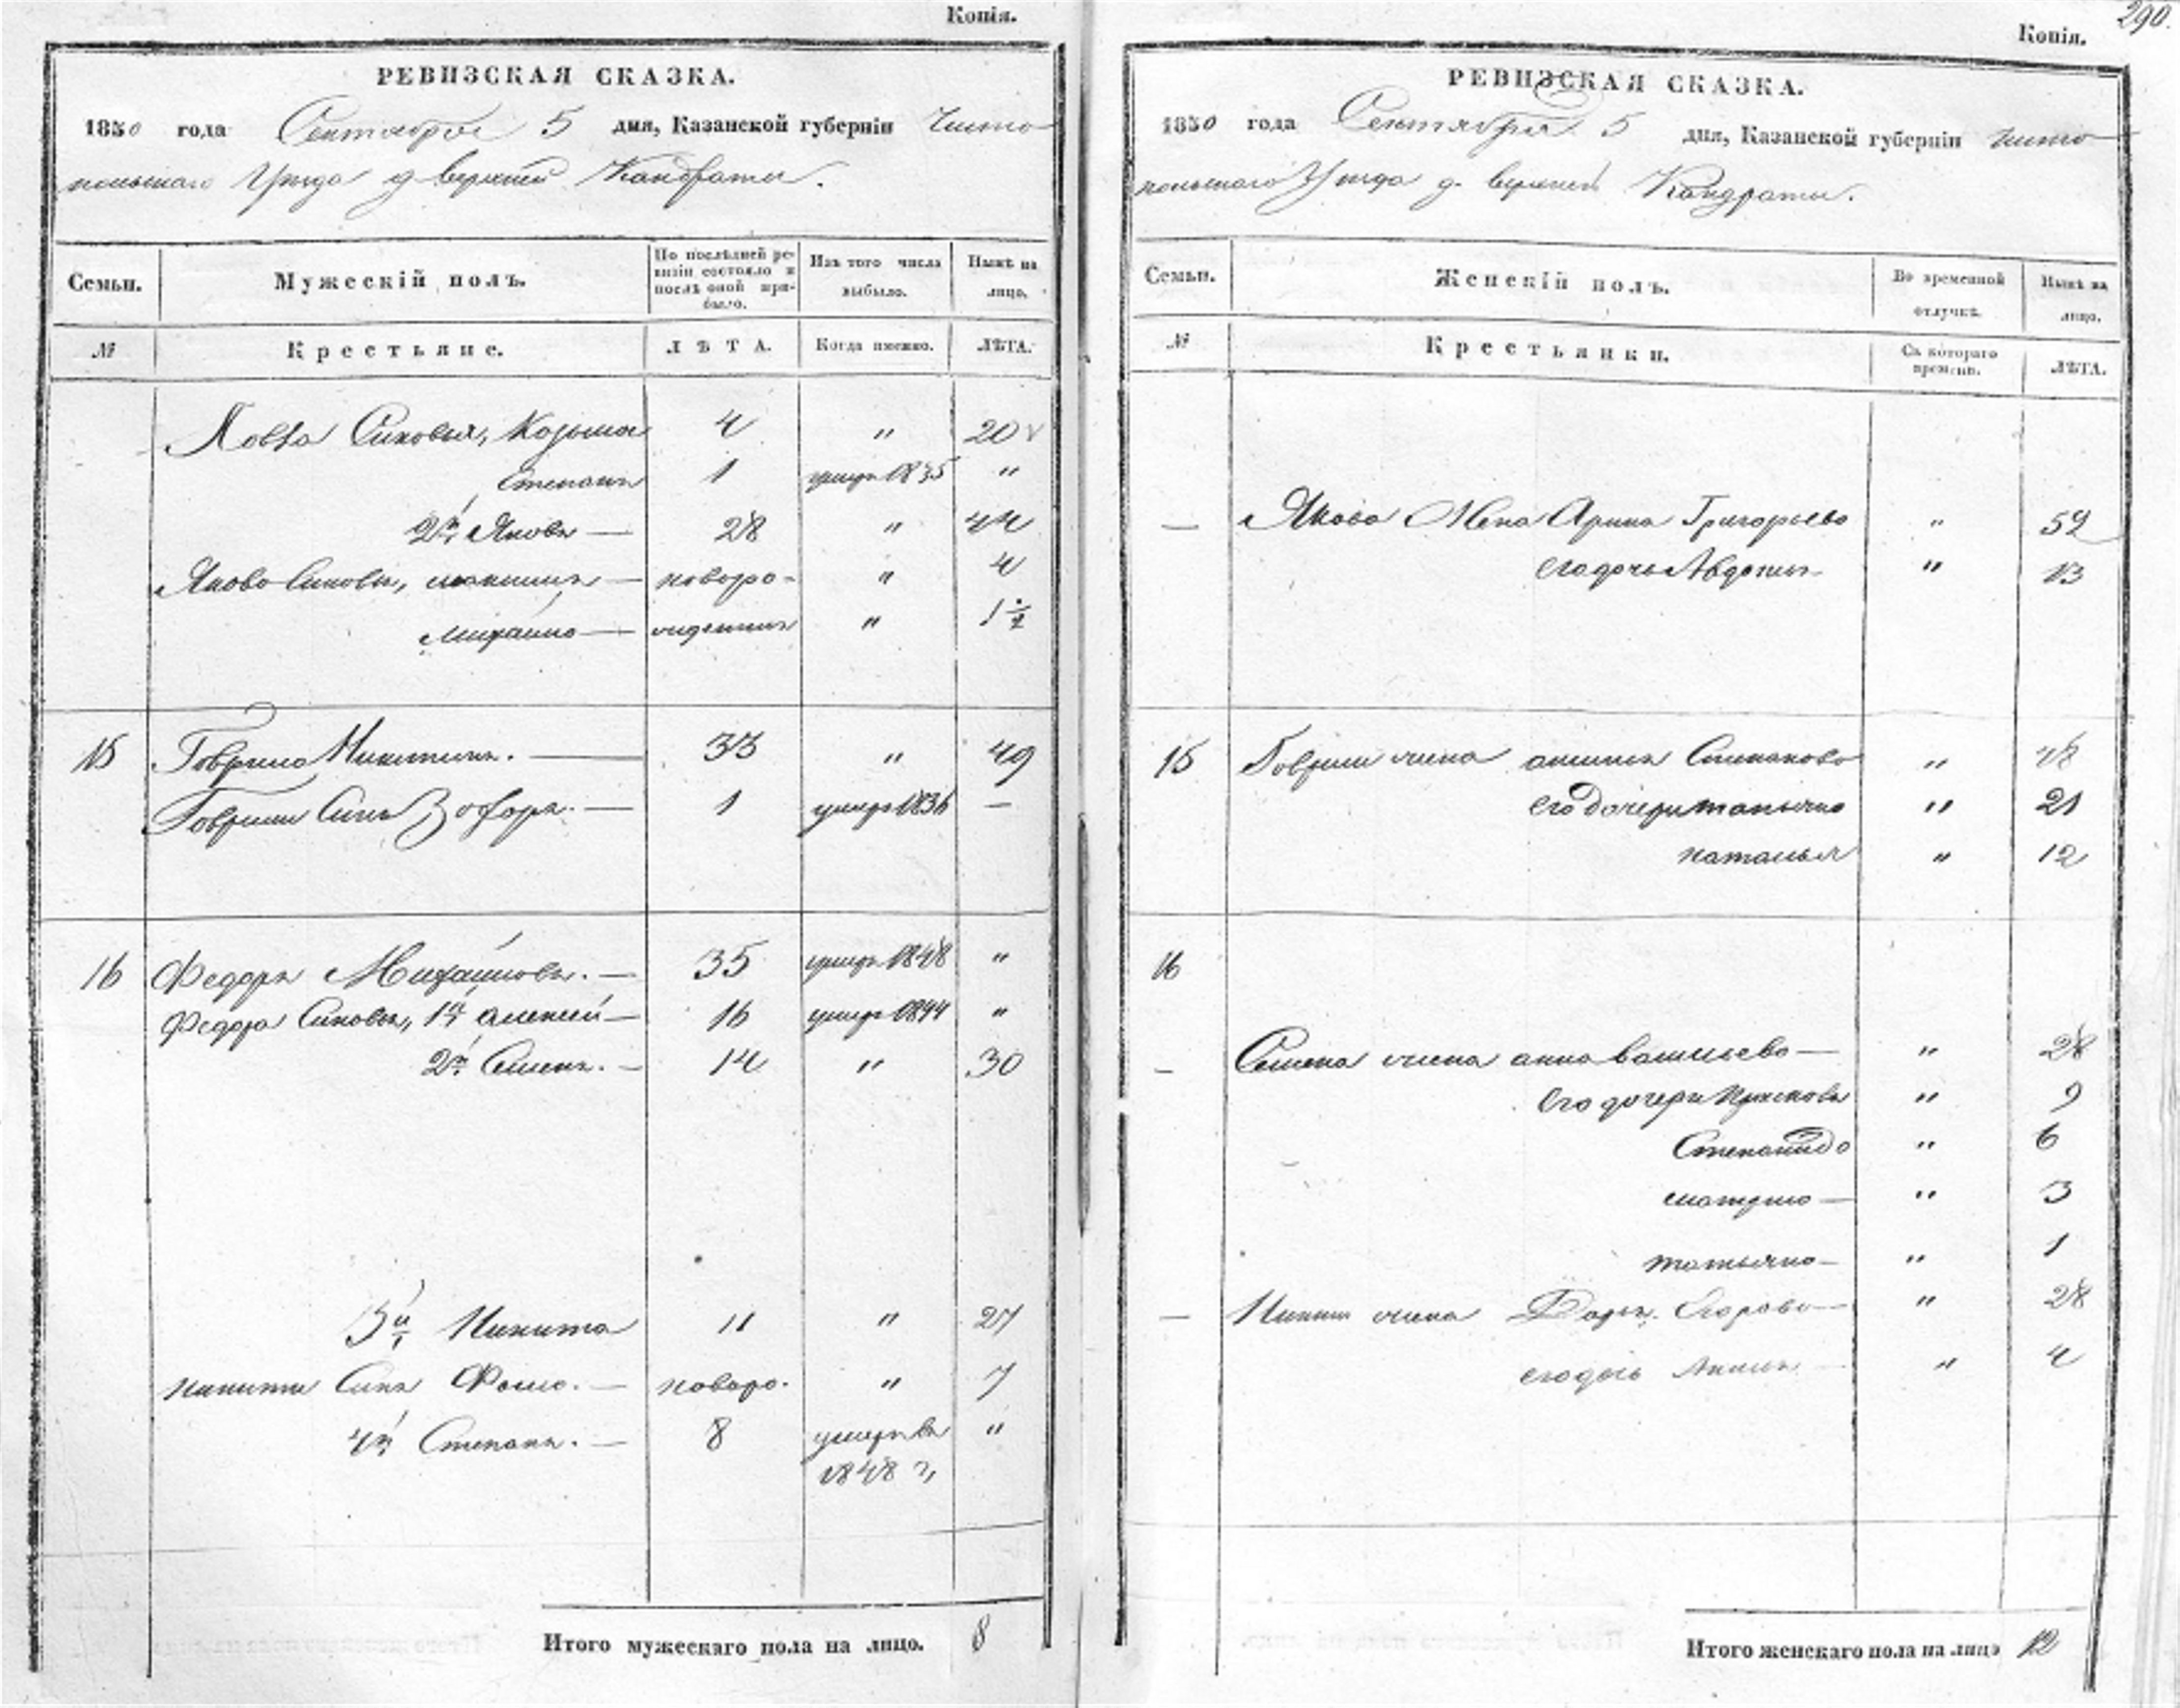 Копія.
РЕВИЗСКАЯ СКАЗКА.
1850 года Сентября 5 дня, Казанской губерніи Чисто-
польскаго Уезда д. верхней Кандраты.
Семьи. Мужескій полъ. По послѣдней ревизіи состояло и послѣ оной прибыло. Изъ того числа выбыло. Нынѣ на лицо.
№ Крестьяне. ЛѢТА. Когда именно. ЛѢТА.
Сыновья, Козьма 4 " 20
Степанъ 1 умеръ 1835 "
2й Яковъ — 28 " 44
Якова Сыновья, — новоро- " 4
Михайло — жденныя " 1 1/2
15 Гаврила Никитинъ. — 33 " 49
Гаврилы Сынъ Захаръ. — 1 умеръ 1836 —
16 Федоръ Михайловъ. — 35 умеръ 1848 "
Федора Сыновья, 1й алексей — 16 умеръ 1844 "
2й Семенъ. — 14 " 30
3й Никита 11 " 27
никиты Сынъ Фома. — новоро. " 7
4й Степанъ. — 8 умеръ въ "
1848 г.
Итого мужескаго пола на лицо. 8
290.
Копія.
РЕВИЗСКАЯ СКАЗКА.
1850 года Сентября 5 дня, Казанской губерніи Чисто-
польскаго Уезда д. верхней Кандраты.
Семьи. Женскій полъ. Во временной отлучкѣ. Нынѣ на лицо.
№ Крестьянки. Съ котораго времени. ЛѢТА.
— Якова Жена Арина Григорьева " 52
его дочь Авдотья " 13
15 Гаврилы жена Степанова " 48
его дочери татьяна " 21
наталья " 12
16
— Семена жена анна васильева — " 28
Его дочери Прасковья " 9
Степанида " 6
матрена — " 3
татьяна — " 1
— Никиты жена Дарья Егорова — " 28
его дочь — " 4
Итого женскаго пола на лицо 12